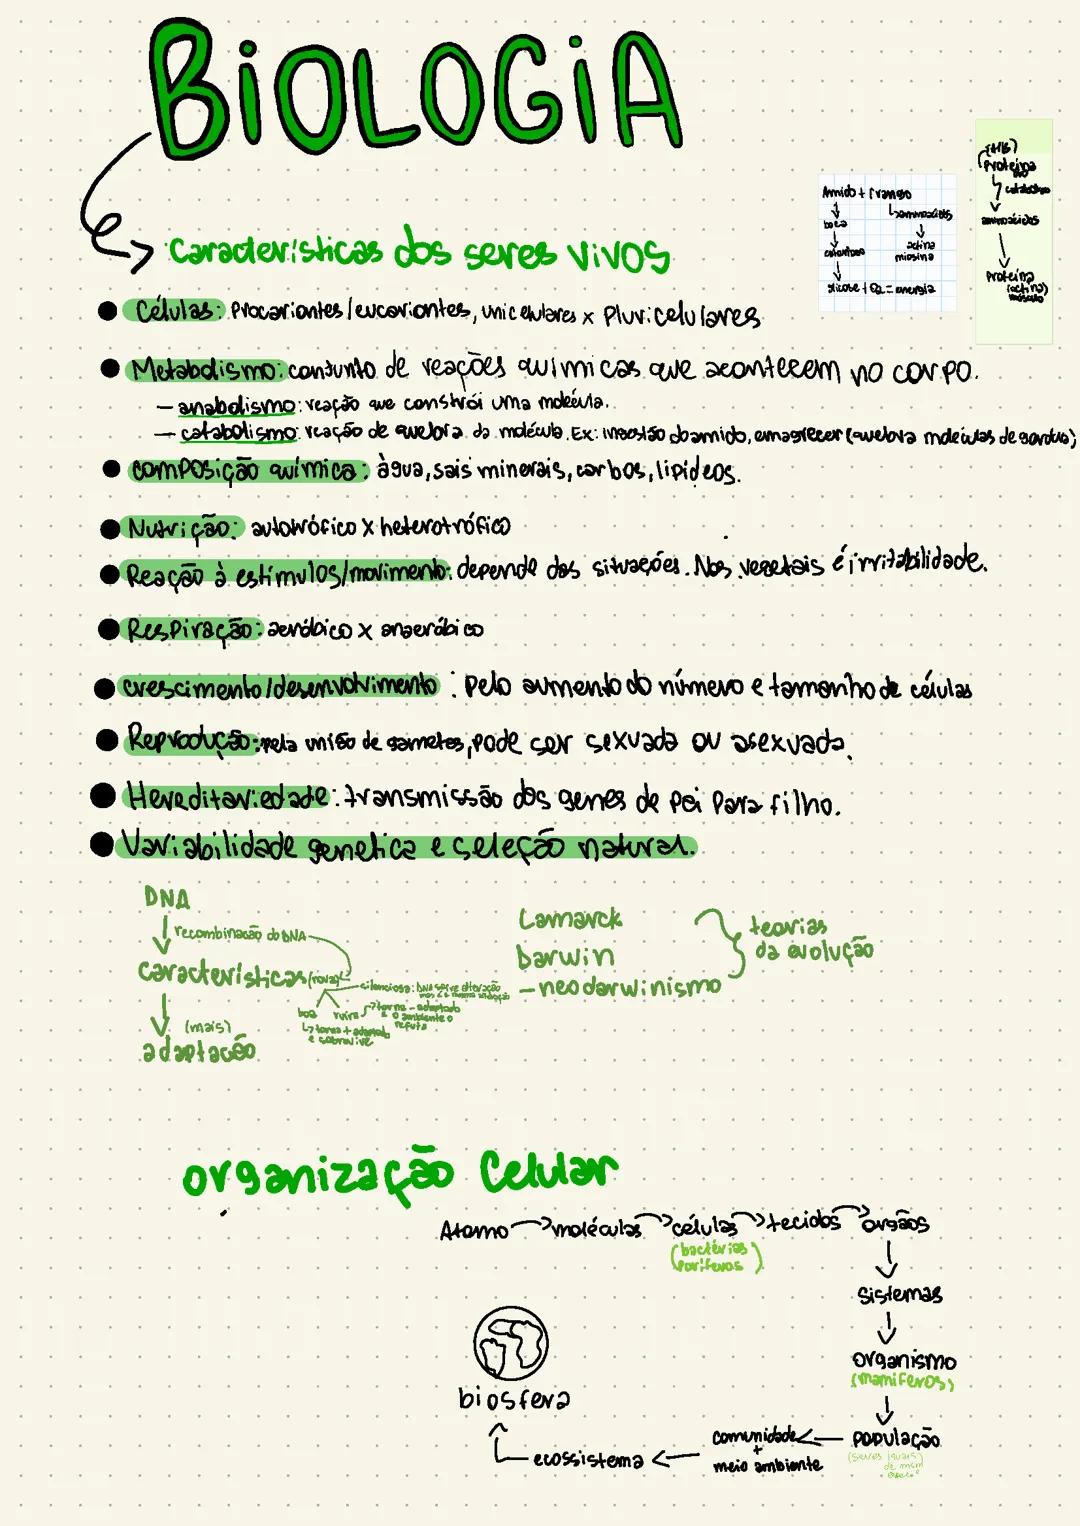 BiOLOGiA
Características dos seres vivos
Amido + frango
boca
aminoácidos
actina
miosina
glicose + O2 = energia
Proteína
catabolismo
aminoácidos
Proteína
(actina)
músculo
Células: Procariontes/eucariontes, unicelulares x Pluricelulares
Metabolismo: conjunto de reações químicas que acontecem no corpo.
- anabolismo: reação que constrói uma molécula.
- catabolismo: reação de quebra da molécula. Ex: ingestão do amido, emagrecer (quebra moléculas de gordura)
composição química: àgua, sais minerais, carbos, lipídeos.
Nutrição: autotrófico x heterotrófico
Reação à estímulos/movimento: depende das situações. Nos vegetais é irritabilidade.
Respiração: aeróbico x anaeróbico
crescimento/desenvolvimento: Pelo aumento do número e tamanho de células
Reprodução: pela união de gametas, pode ser sexuada ou asexuada.
Hereditariedade: transmissão dos genes de pai para filho.
Variabilidade genetica e seleção natural.
DNA
recombinação do DNA
características (novas)
silenciosa: DNA sofre alteração
boa
ruim
torna - adaptado
a o ambiente o
refuta
torna + adaptado
e sobrevive
(mais)
adaptação
Lamarck
Darwin
- neodarwinismo
teorias
da evolução
organização Celular
Atomo moléculas células tecidos orgãos
(bactérias
Poríferos)
sistemas
organismo
(mamíferos)
População
(seres iguais
comunidade
+
meio ambiente
ecossistema
biosfera